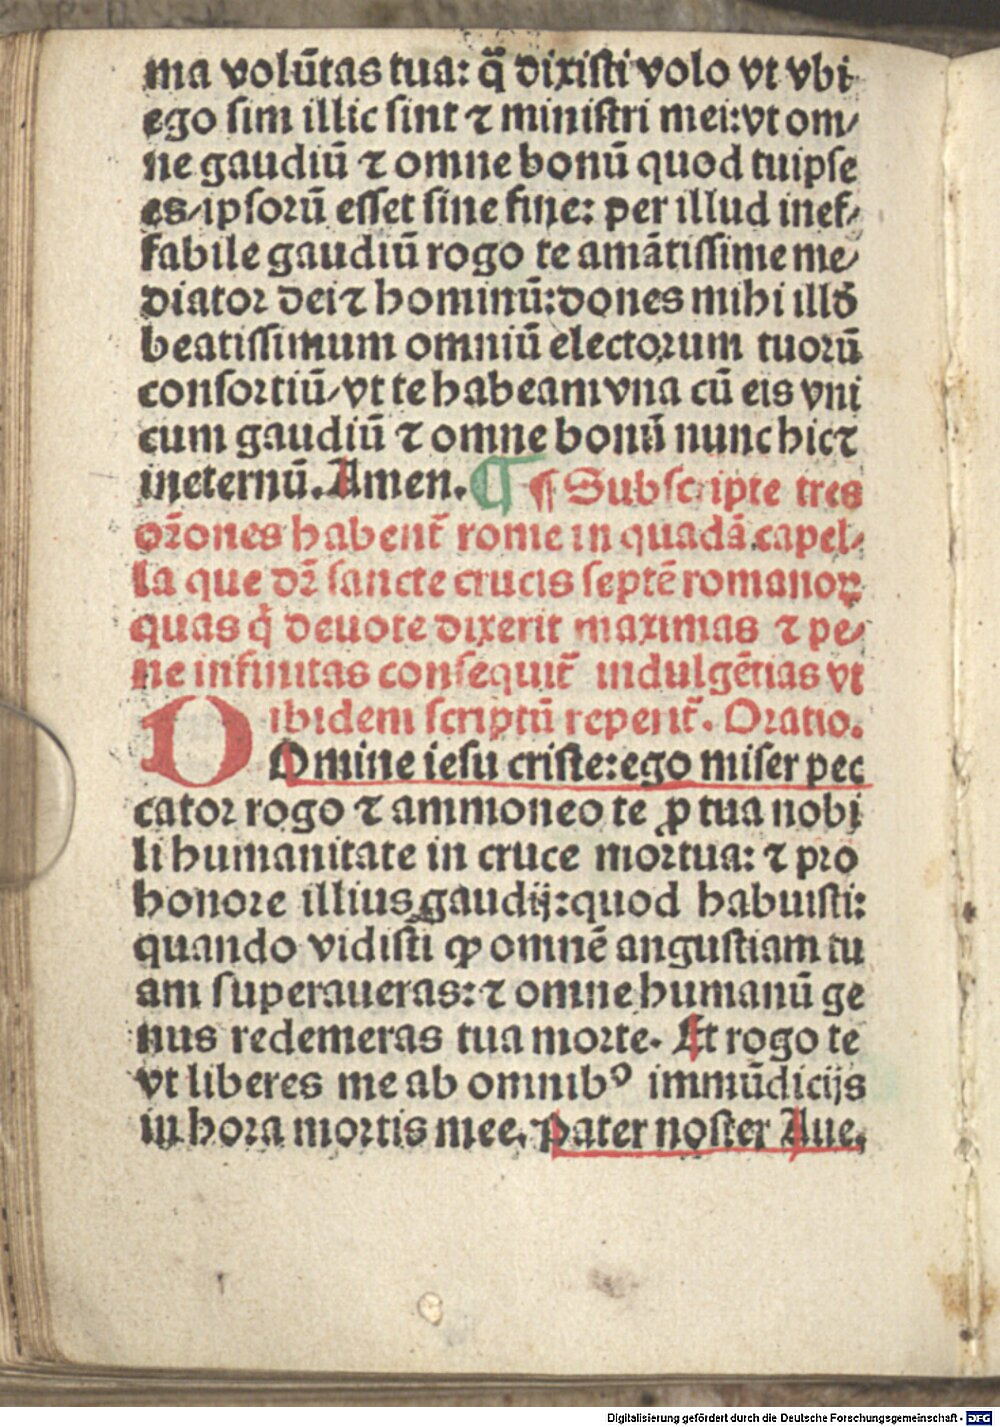 ma volūtas tua: q̄ dixisti volo vt vbi
ego sim illic sint ⁊ ministri mei:vt om/
ne gaudiū ⁊ omne bonū quod tuipse
es/ipsorū esset sine fine: per illud inef/
fabile gaudiū rogo te amātissime me/
diator dei⁊ hominū:dones mihi illō
beatissimum omniū electorum tuorū
consortiū/vt te habeam vna cū eis vni
cum gaudiū ⁊ omne bonū nunc hic⁊
ineternū. Amen. ¶ ¶ Subscripte tres
or̄ones habent᷑ rome in quadā capel/
la que dr̄ sancte crucis septē romanoꝝ
quas q̇ deuote dixerit maximas ⁊ pe/
ne infinitas consequit᷑ indulgētias vt
ibidem scriptū reperit᷑. Oratio.
Domine iesu criste:ego miser pec
cator rogo ⁊ ammoneo te ꝓ tua nobi
li humanitate in cruce mortua: ⁊ pro
honore illius gaudij:quod habuisti:
quando vidisti ꝙ omnē angustiam tu
am superaueras: ⁊ omne humanū ge
nus redemeras tua morte. Et rogo te
vt liberes me ab omnibꝰ immūdicijs
in hora mortis mee. Pater noster Aue.
Digitalisierung gefördert durch die Deutsche Forschungsgemeinschaft - DFG